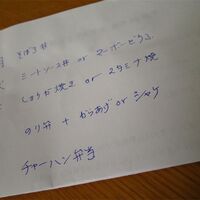 そぼろ丼
ミートソース丼 or マーボーどうふ
しょうが焼き or スタミナ焼
のり弁 + からあげ or シャケ
チャーハン弁当